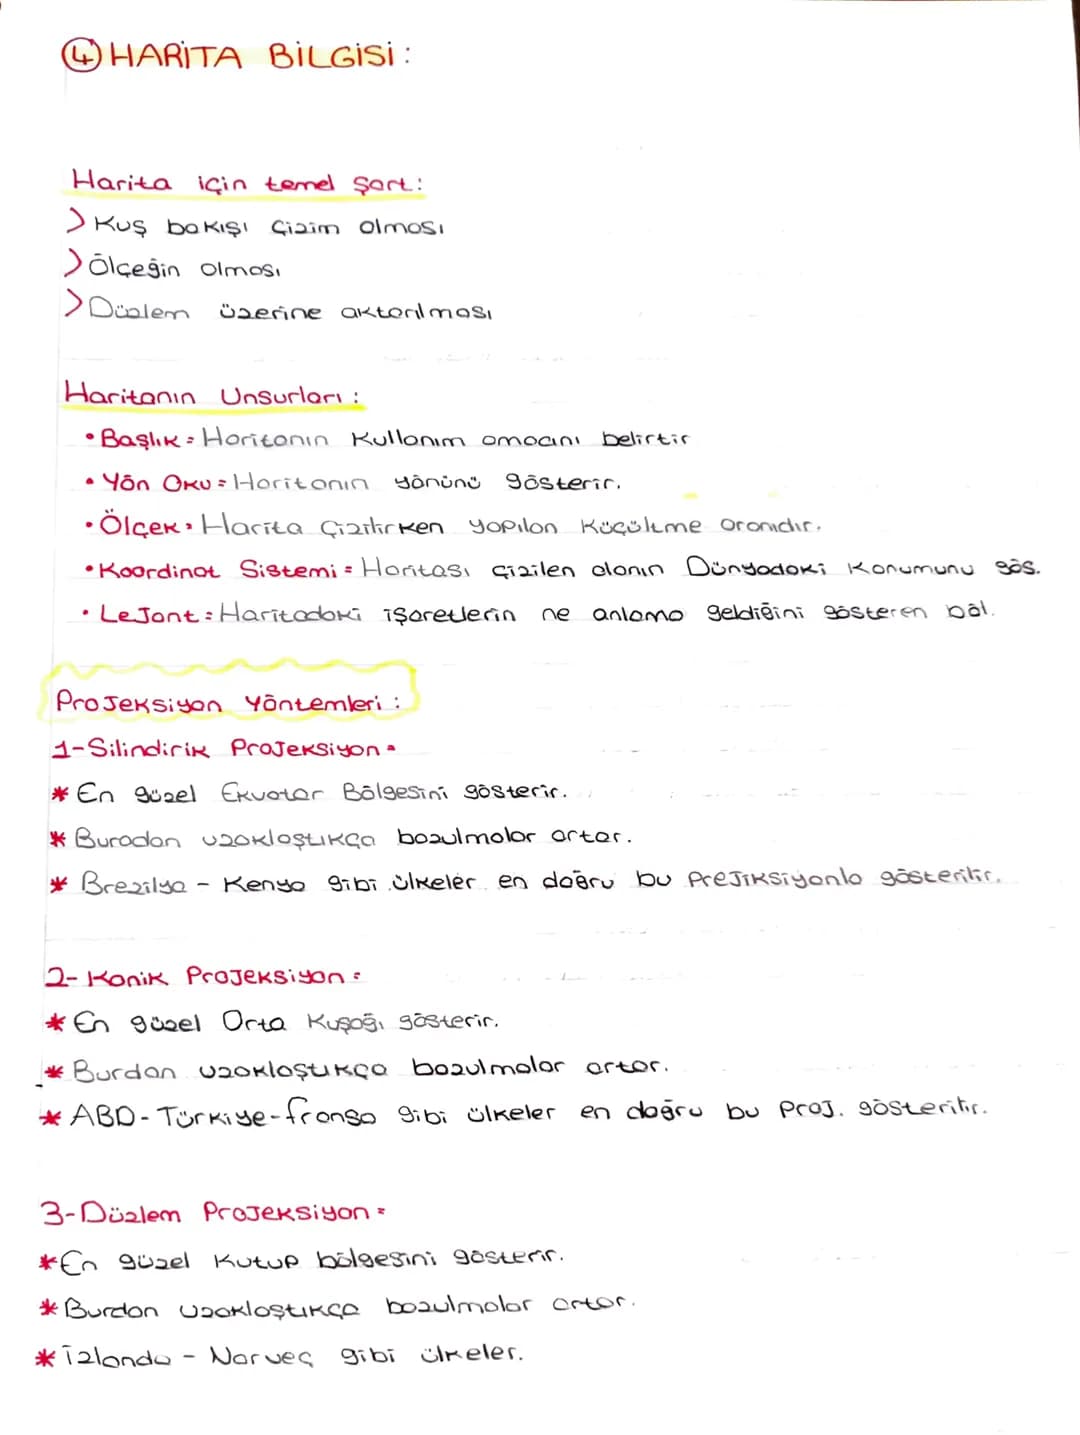 ④ HARİTA BİLGİSİ:
Harita için temel şart:
> Kuş bakışı çizim olması
> Ölçeğin olması
> Düzlem üzerine aktarılması
Haritanın Unsurları:
• Başlık = Haritanın kullanım amacını belirtir
• Yön Oku = Haritanın yönünü gösterir.
• Ölçek = Harita çizilirken yapılan küçültme oranıdır.
• Koordinat Sistemi = Haritası çizilen alanın Dünyadaki konumunu gös.
• Lejant: Haritadaki işaretlerin ne anlama geldiğini gösteren böl.
Projeksiyon Yöntemleri:
1-Silindirik Projeksiyon =
* En güzel Ekvator Bölgesini gösterir.
* Buradan uzaklaştıkça bozulmalar artar.
* Brezilya - Kenya gibi ülkeler en doğru bu Projiksiyonla gösterilir.
2- Konik Projeksiyon =
* En güzel Orta Kuşağı gösterir.
* Burdan uzaklaştıkça bozulmalar artar.
* ABD-Türkiye-fransa gibi ülkeler en doğru bu proj. gösterilir.
3-Düzlem Projeksiyon =
* En güzel Kutup bölgesini gösterir.
* Burdan uzaklaştıkça bozulmalar artar.
* İzlanda - Norveç gibi ülkeler.